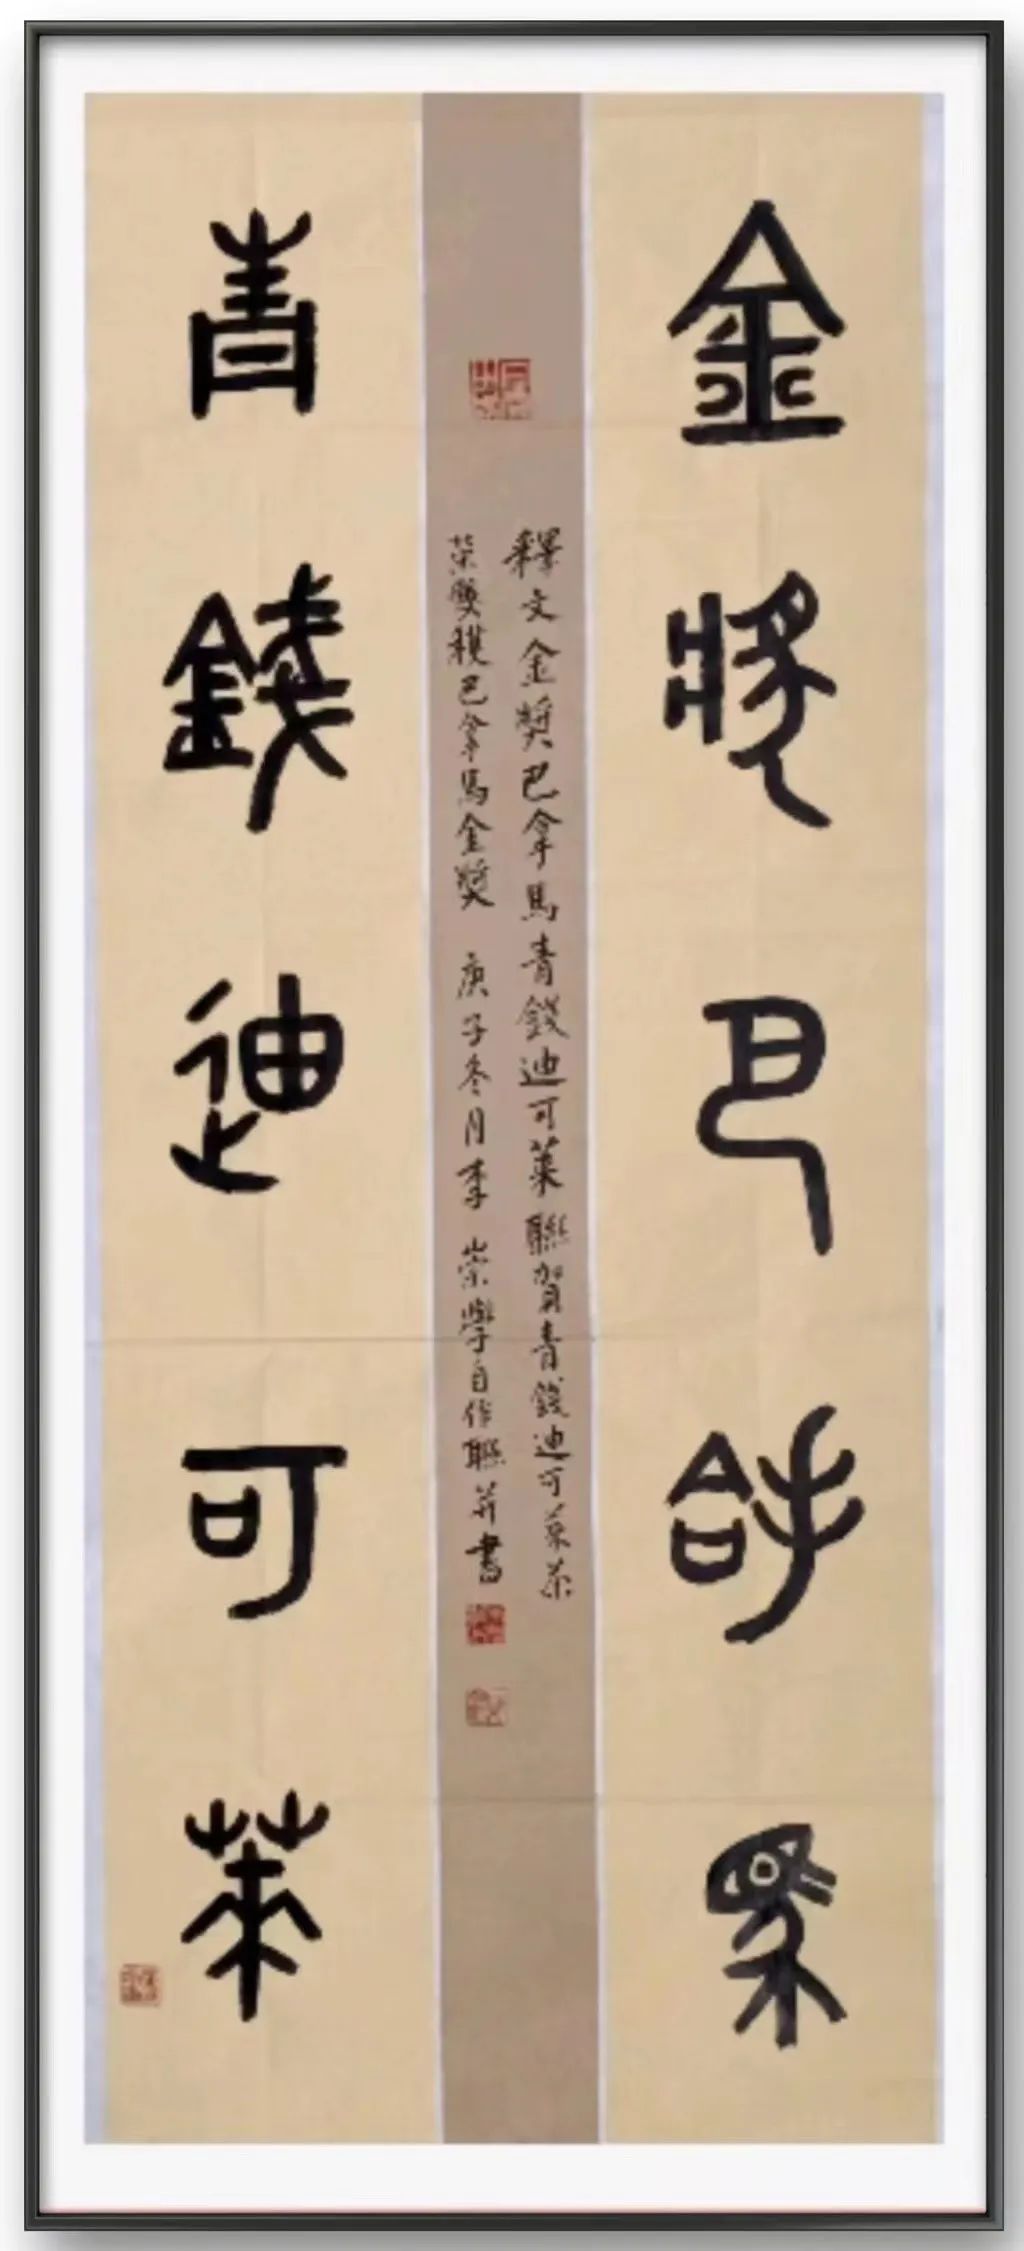 金獎巴拿馬
釋文金獎巴拿馬青錢迪可萊聯賀青錢迪可萊茶
榮獎穫巴拿馬金獎 庚子冬月李崇學自作聯並書
青錢迪可萊